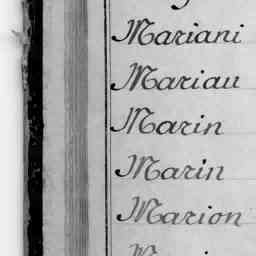 Mariani
Mariau
Marin
Marin
Marion